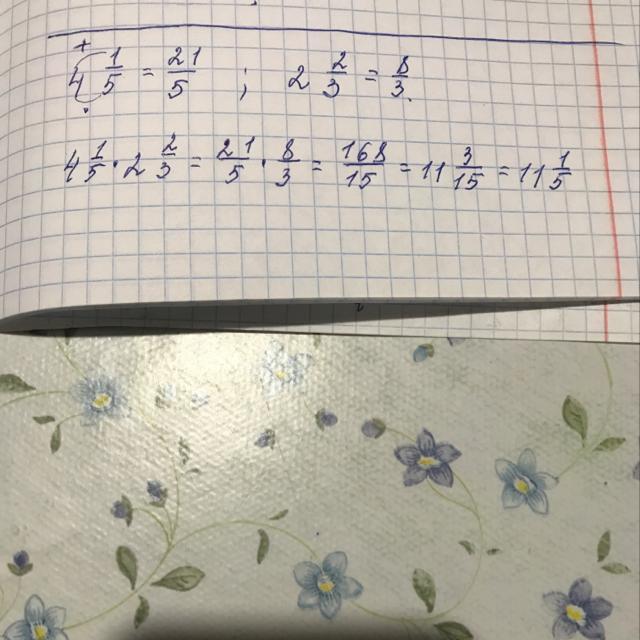 4 1/5 = 21/5 ; 2 2/3 = 8/3.
4 1/5 · 2 2/3 = 21/5 · 8/3 = 168/15 = 11 3/15 = 11 1/5